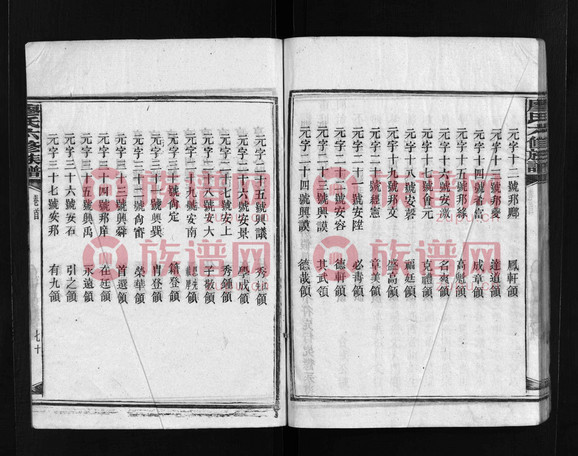 元字十二號邦 鳳軒領
元字十三號邦慶 達道領
元字十四號希富 成章領
元字十五號邦 高魁領
元字十六號安 名爽領
元字十七號會元 克禮領
元字十八號安蓉 福廷領
元字十九號邦文 盛高領
元字二十號經憲 章美領
元字二十一號安陞 必壽領
元字二十二號安容 德軒領
元字二十三號興謨 其武領
元字二十四號興謨 德哉領
元字二十五號興議 秀 領
元字二十六號安景 學成領
元字二十七號安上 秀鍾領
元字二十八號安大 子敬領
元字二十九號安南 領
元字三十號尙定 籍登領
元字三十一號興 肖登領
元字三十二號尙霄 榮華領
元字三十三號興舜 首選領
元字三十四號邦庠 在廷領
元字三十五號興禹 永遠領
元字三十六號安石 引之領
元字三十七號安邦 有九領
廖氏六修族譜
卷首
七十
族谱网